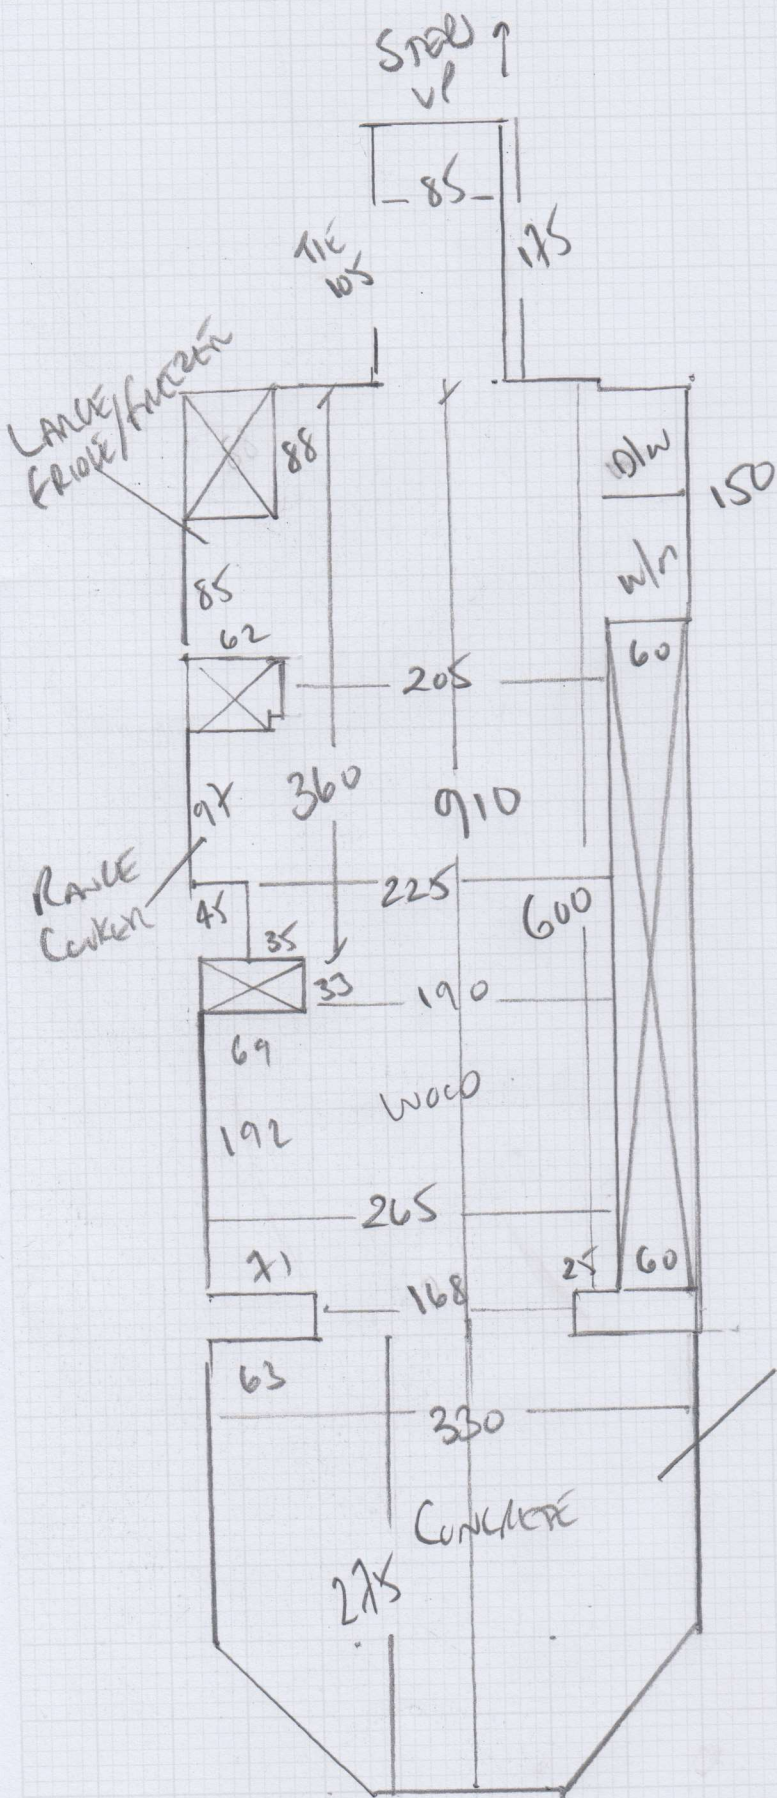 STEP
UP
85
175
TIE
105
LARGE
FRIDGE/FREEZER
88
D/W
150
85
W/M
62
60
205
97
360
910
RANGE
COOKER
45
225
600
35
33
190
69
WOOD
192
265
71
168
25
60
63
330
CONCRETE
275